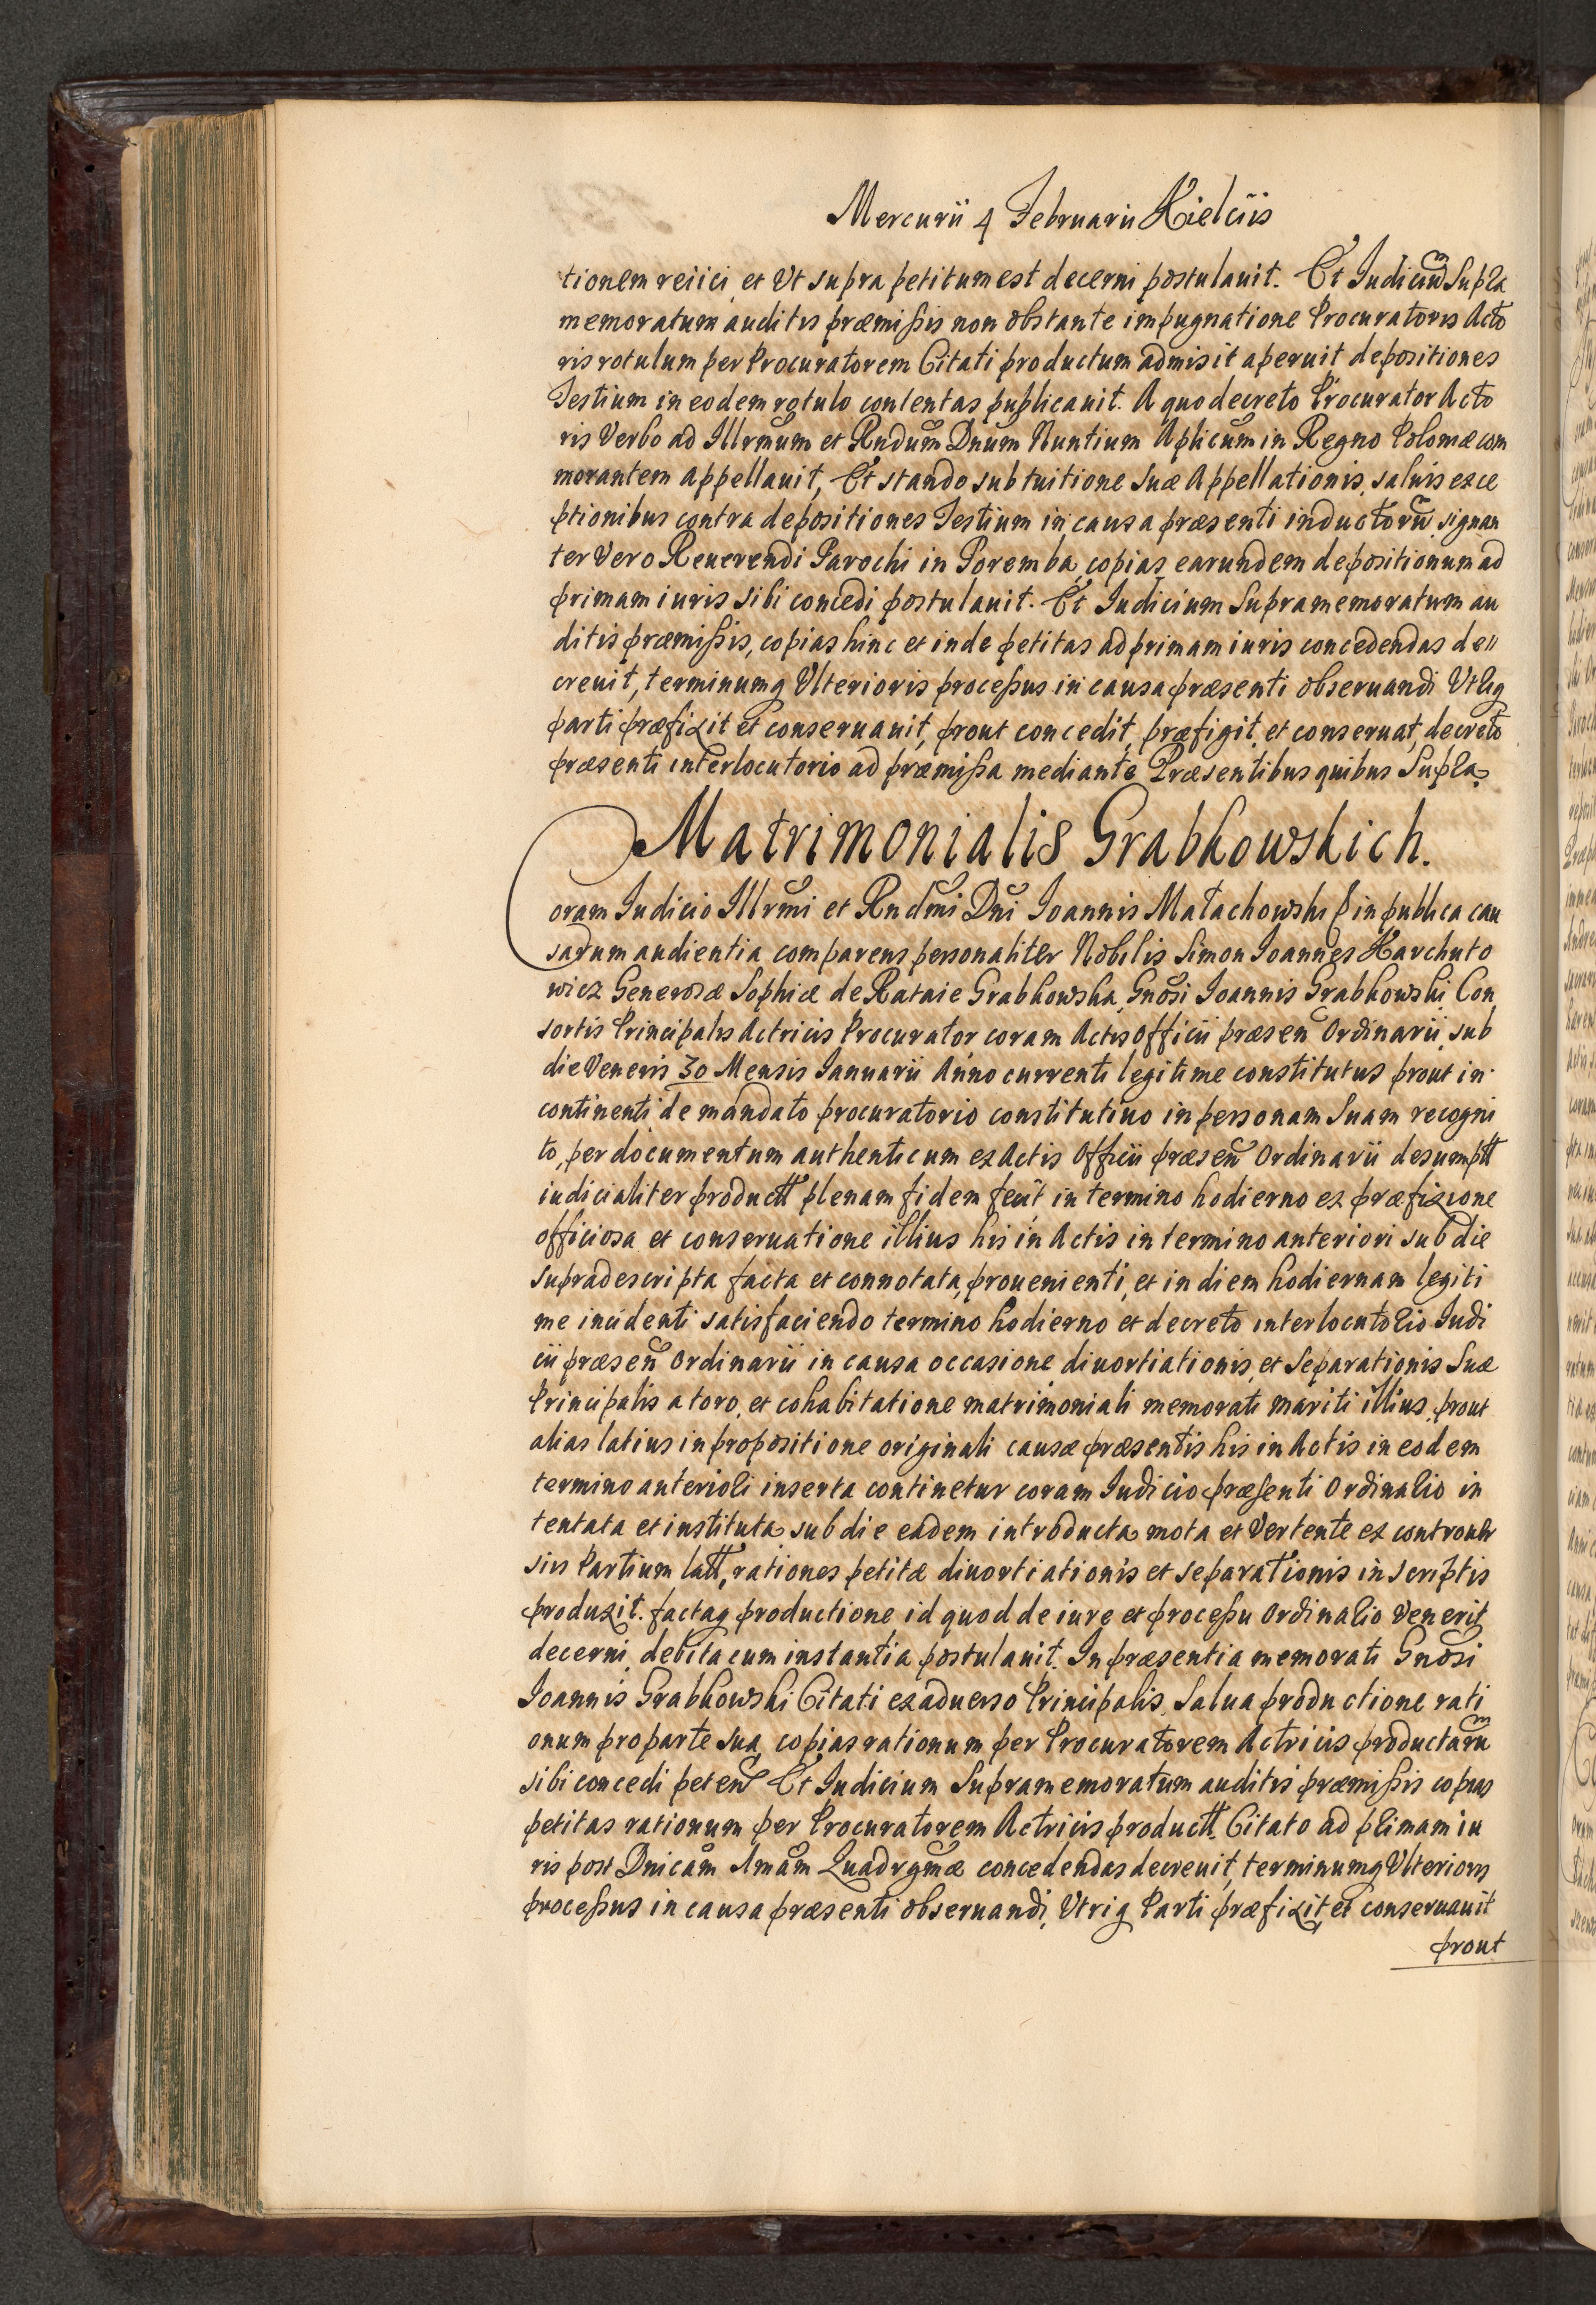 Mercurii 4 Februarii Kielciis
tionem reiici, et Vt supra petitum est decerni postulauit. Et Iudiciũ Supra
memoratum auditis præmißis non obstante impugnatione Procuratoris Acto
ris rotulum per Procuratorem Citati productum admisit aperuit depositiones
Testium in eodem rotulo contentas publicauit. A quo decreto Procurator Acto
ris Verbo ad Illrmum et Rndum Dnum Nuntium Aplicum in Regno Poloniæ com
morantem appellauit, Et stando sub tuitione Suæ Appellationis, saluis exce
ptionibus contra depositiones Testium in causa præsenti inductorũ, signan
ter Vero Reuerendi Parochi in Poremba, copias earundem depositionum ad
primam iuris sibi concedi postulauit. Et Iudicium Supramemoratum au
ditis præmißis, copias hinc et inde petitas ad primam iuris concedendas de〃
creuit, terminumq Vlterioris proceßus in causa præsenti obseruandi Vtriq
parti præfixit et conseruauit, prout concedit, præfigit, et conseruat, decreto
præsenti interlocutorio ad præmißa mediante Præsentibus quibus Supra.
Matrimonialis Grabkowskich.
Coram Iudicio Illrmi et Rndmi Dni Ioannis Małachowski in publica cau
sarum audientia comparens personaliter Nobilis Simon Ioannes Karchuto
wicz Generosæ Sophiæ de Rataie Grabkowska, Gnosi Ioannis Grabkowski Con
sortis Principalis Actricis Procurator, coram Actis Officii præsen Ordinarii, sub
die Veneris 30 Mensis Ianuarii Anno currenti legitime constitutus prout in
continenti de mandato procuratorio constitutiuo in personam Suam recogni
to, per documentum authenticum ex Actis Officii præsen Ordinarii desumptt
iudicialiter productt plenam fidem fecit, in termino hodierno ex præfixione
officiosa et conseruatione illius his in Actis in termino anteriori sub die
supradescripta facta et connotata, prouenienti, et in diem hodiernam legiti
me incidenti satisfaciendo termino hodierno et decreto interlocutorio Iudi
cii præsen Ordinarii in causa occasione diuortiationis, et Separationis Suæ
Principalis a toro, et cohabitatione matrimoniali memorati mariti illius, prout
alias latius in propositione originali causæ præsentis his in Actis in eodem
termino anteriori inserta continetur coram Iudicio præsenti Ordinario in
tentata et instituta, sub die eadem introducta mota et Vertente ex controuer
siis Partium latt, rationes petitæ diuortiationis et separationis in scriptis
produxit. factaq productione id quod de iure et proceßu Ordinario Venerit
decerni debita cum instantia postulauit. In præsentia memorati Gnosi
Ioannis Grabkowski Citati ex aduerso Principalis, Salua productione rati
onum pro parte sua, copias rationum per Procuratorem Actricis productarũ
sibi concedi peten Et Iudicium Supramemoratum auditis præmißis copias
petitas rationum per Procuratorem Actricis productt Citato ad primam iu
ris post Dnicam Imam Quadrgmæ concedendas decreuit, terminumq Vlterioris
proceßus in causa præsenti obseruandi, Vtriq Parti præfixit, et conseruauit
prout